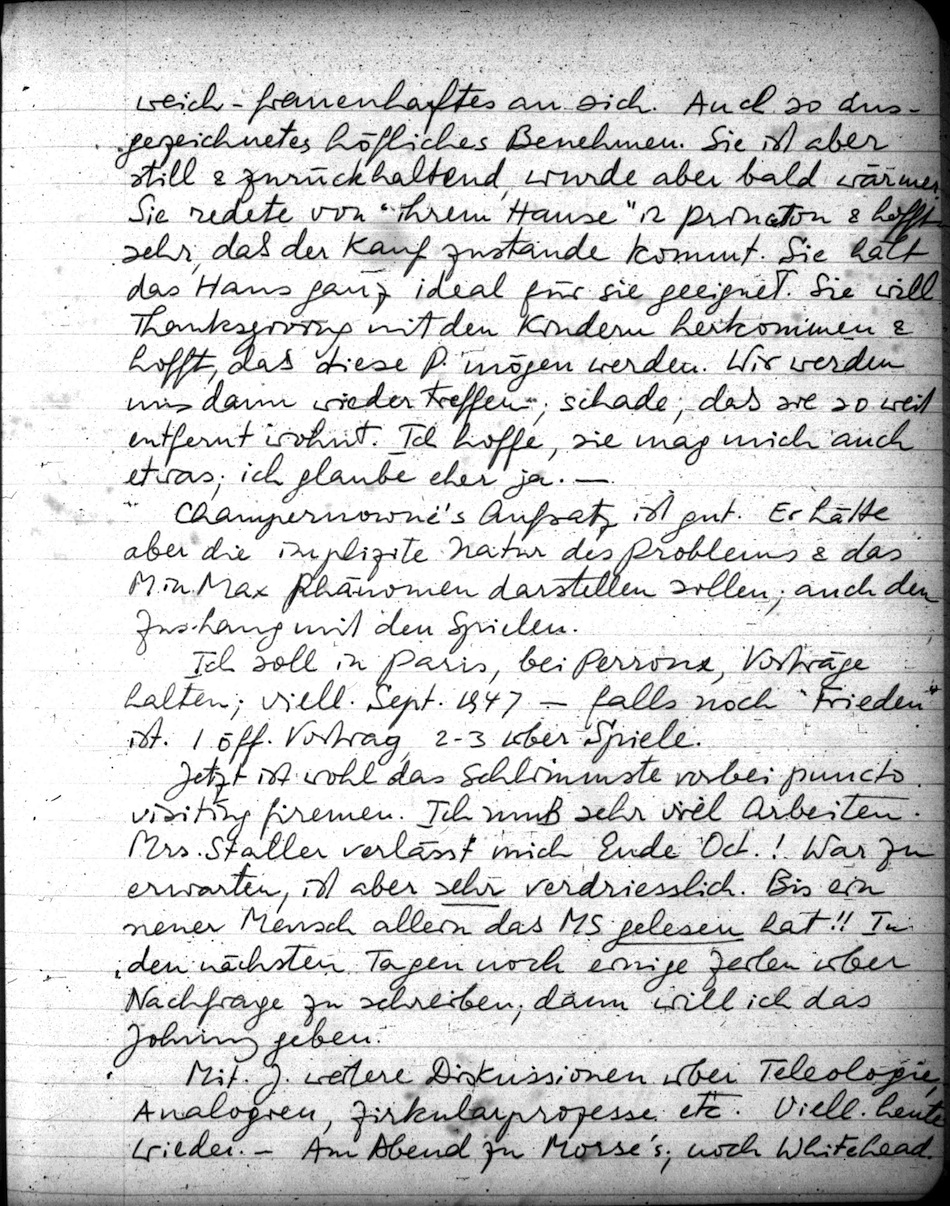 weich-frauenhaftes an sich. Auch so aus-
gezeichnetes höfliches Benehmen. Sie ist aber
still & zurückhaltend, wurde aber bald wärmer.
Sie redete von "ihrem Hause" in Princeton & hofft
sehr, daß der Kauf zustande kommt. Sie hält
das Haus ganz ideal für sie geeignet. Sie will
Thanksgiving mit den Kindern herkommen &
hofft, daß diese P. mögen werden. Wir werden
uns dann wieder treffen; schade, daß sie so weit
entfernt wohnt. Ich hoffe, sie mag mich auch
etwas; ich glaube eher ja. —
Champernowne's Aufsatz ist gut. Er hätte
aber die implizite Natur des Problems & das
Min Max Phänomen darstellen sollen; auch den
Zus.hang mit den Spielen.
Ich soll in Paris, bei Perroux, Vorträge
halten; viell. Sept. 1947 — falls noch "Frieden"
ist. 1 öff. Vortrag, 2-3 über Spiele.
Jetzt ist wohl das Schlimmste vorbei puncto
visiting firemen. Ich muß sehr viel arbeiten.
Mrs. Staller verlässt mich Ende Oct.! War zu
erwarten, ist aber sehr verdriesslich. Bis ein
neuer Mensch allein das MS gelesen hat!! In
den nächsten Tagen noch einige Zeilen über
Nachfrage zu schreiben; dann will ich das
Johnny geben.
Mit J. weitere Diskussionen über Teleologie,
Analogien, Zirkularprozesse etc. Viell. heute
wieder. — Am Abend zu Morse's; noch Whitehead.